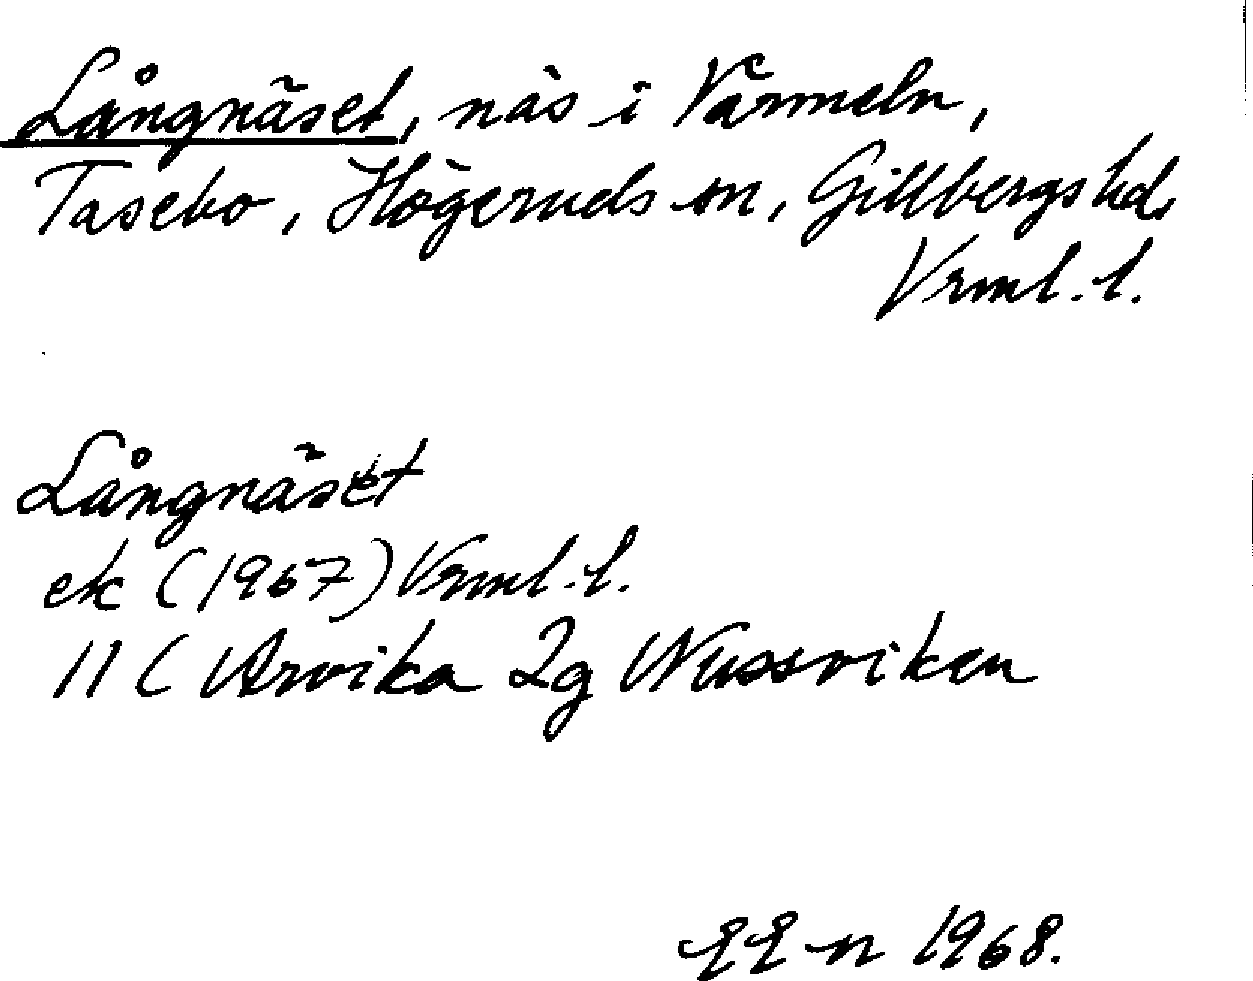 Långnäset, näs i Värmeln,
Tasebo, Högeruds sn, Gillbergs hd,
Vrml. l.
Långnäset
ek (1967) Vrml. l.
11 C Arvika 2g Nussviken
1968.